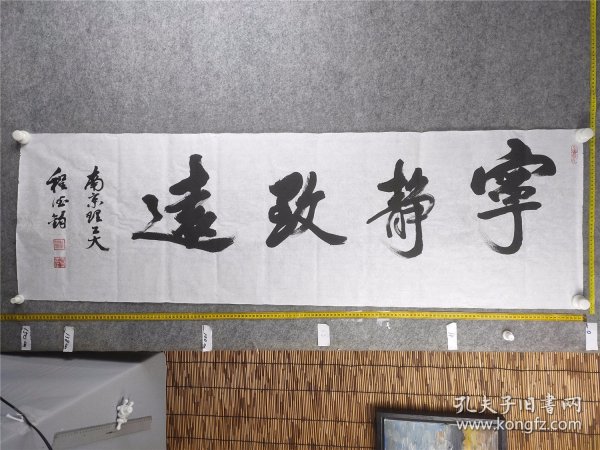 寧靜致遠
南京理工大
程德鈞
孔夫子旧书网
www.kongfz.com